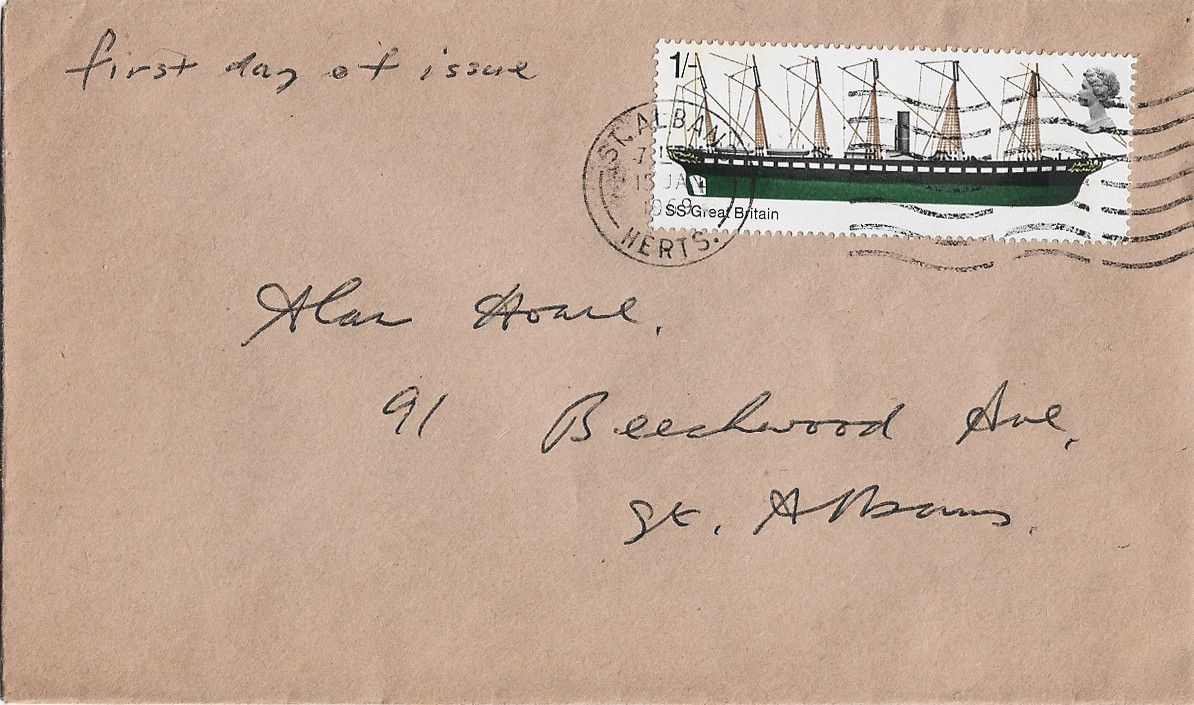 first day of issue
1/-
ST. ALBANS
15 JAN
1969
HERTS.
SS Great Britain
Alan Hoare.
91 Beechwood Ave,
St. Albans.